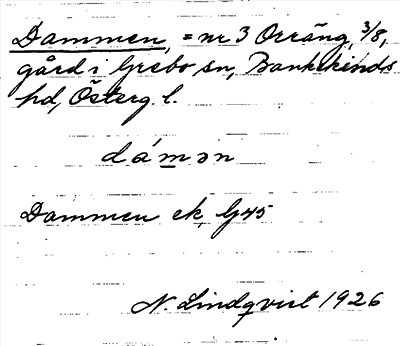 Dammen, = nr 3 Orräng, 3/8,
gård i Grebo sn, Bankekinds
hd, Österg. l.
dámən
Dammen ek. G45
N. Lindqvist 1926